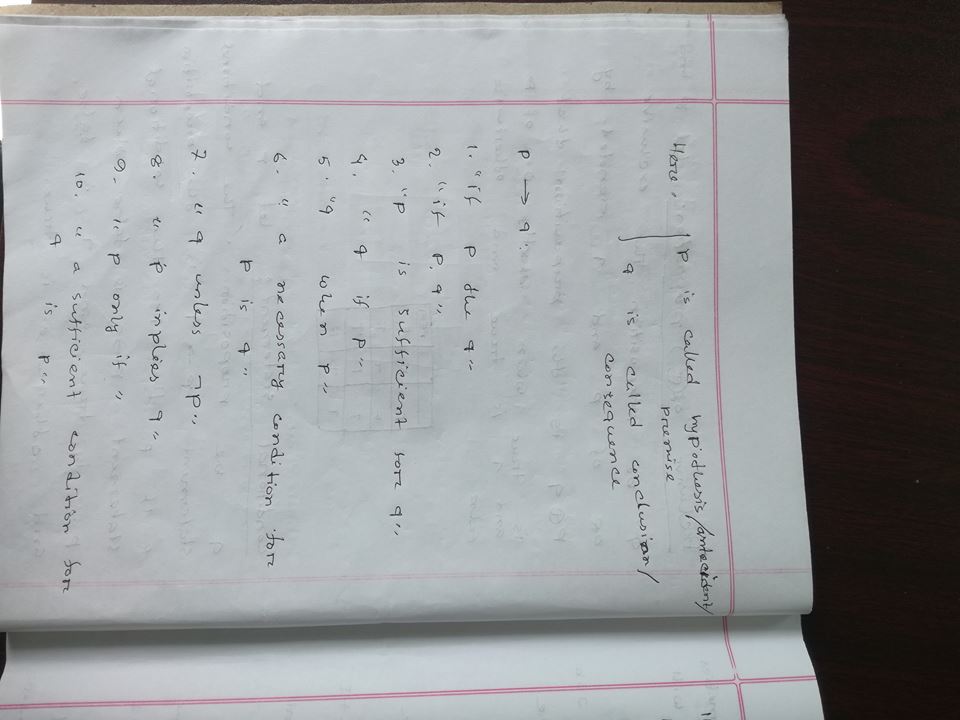 Here, p is called hypothesis/antecident/
premise
q is called conclusion/
consequence
p → q:
1. "if p the q"
2. "if p, q"
3. "p is sufficient for q"
4. "q if p"
5. "q when p"
6. "a necessary condition for
p is q"
7. "q unless ¬p"
8. "p inplies q"
9. "p only if"
10. "a sufficient condition for
q is p"